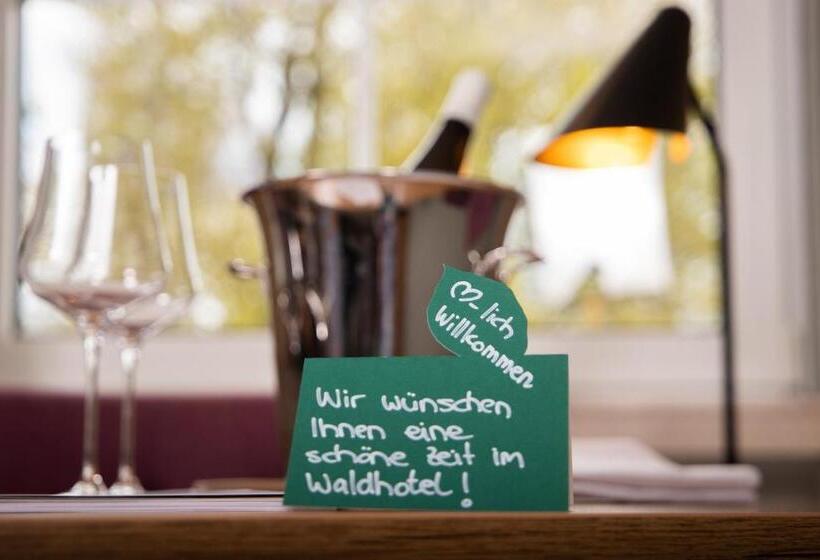 ♡-lich
Willkommen
Wir wünschen
Ihnen eine
schöne Zeit im
Waldhotel!